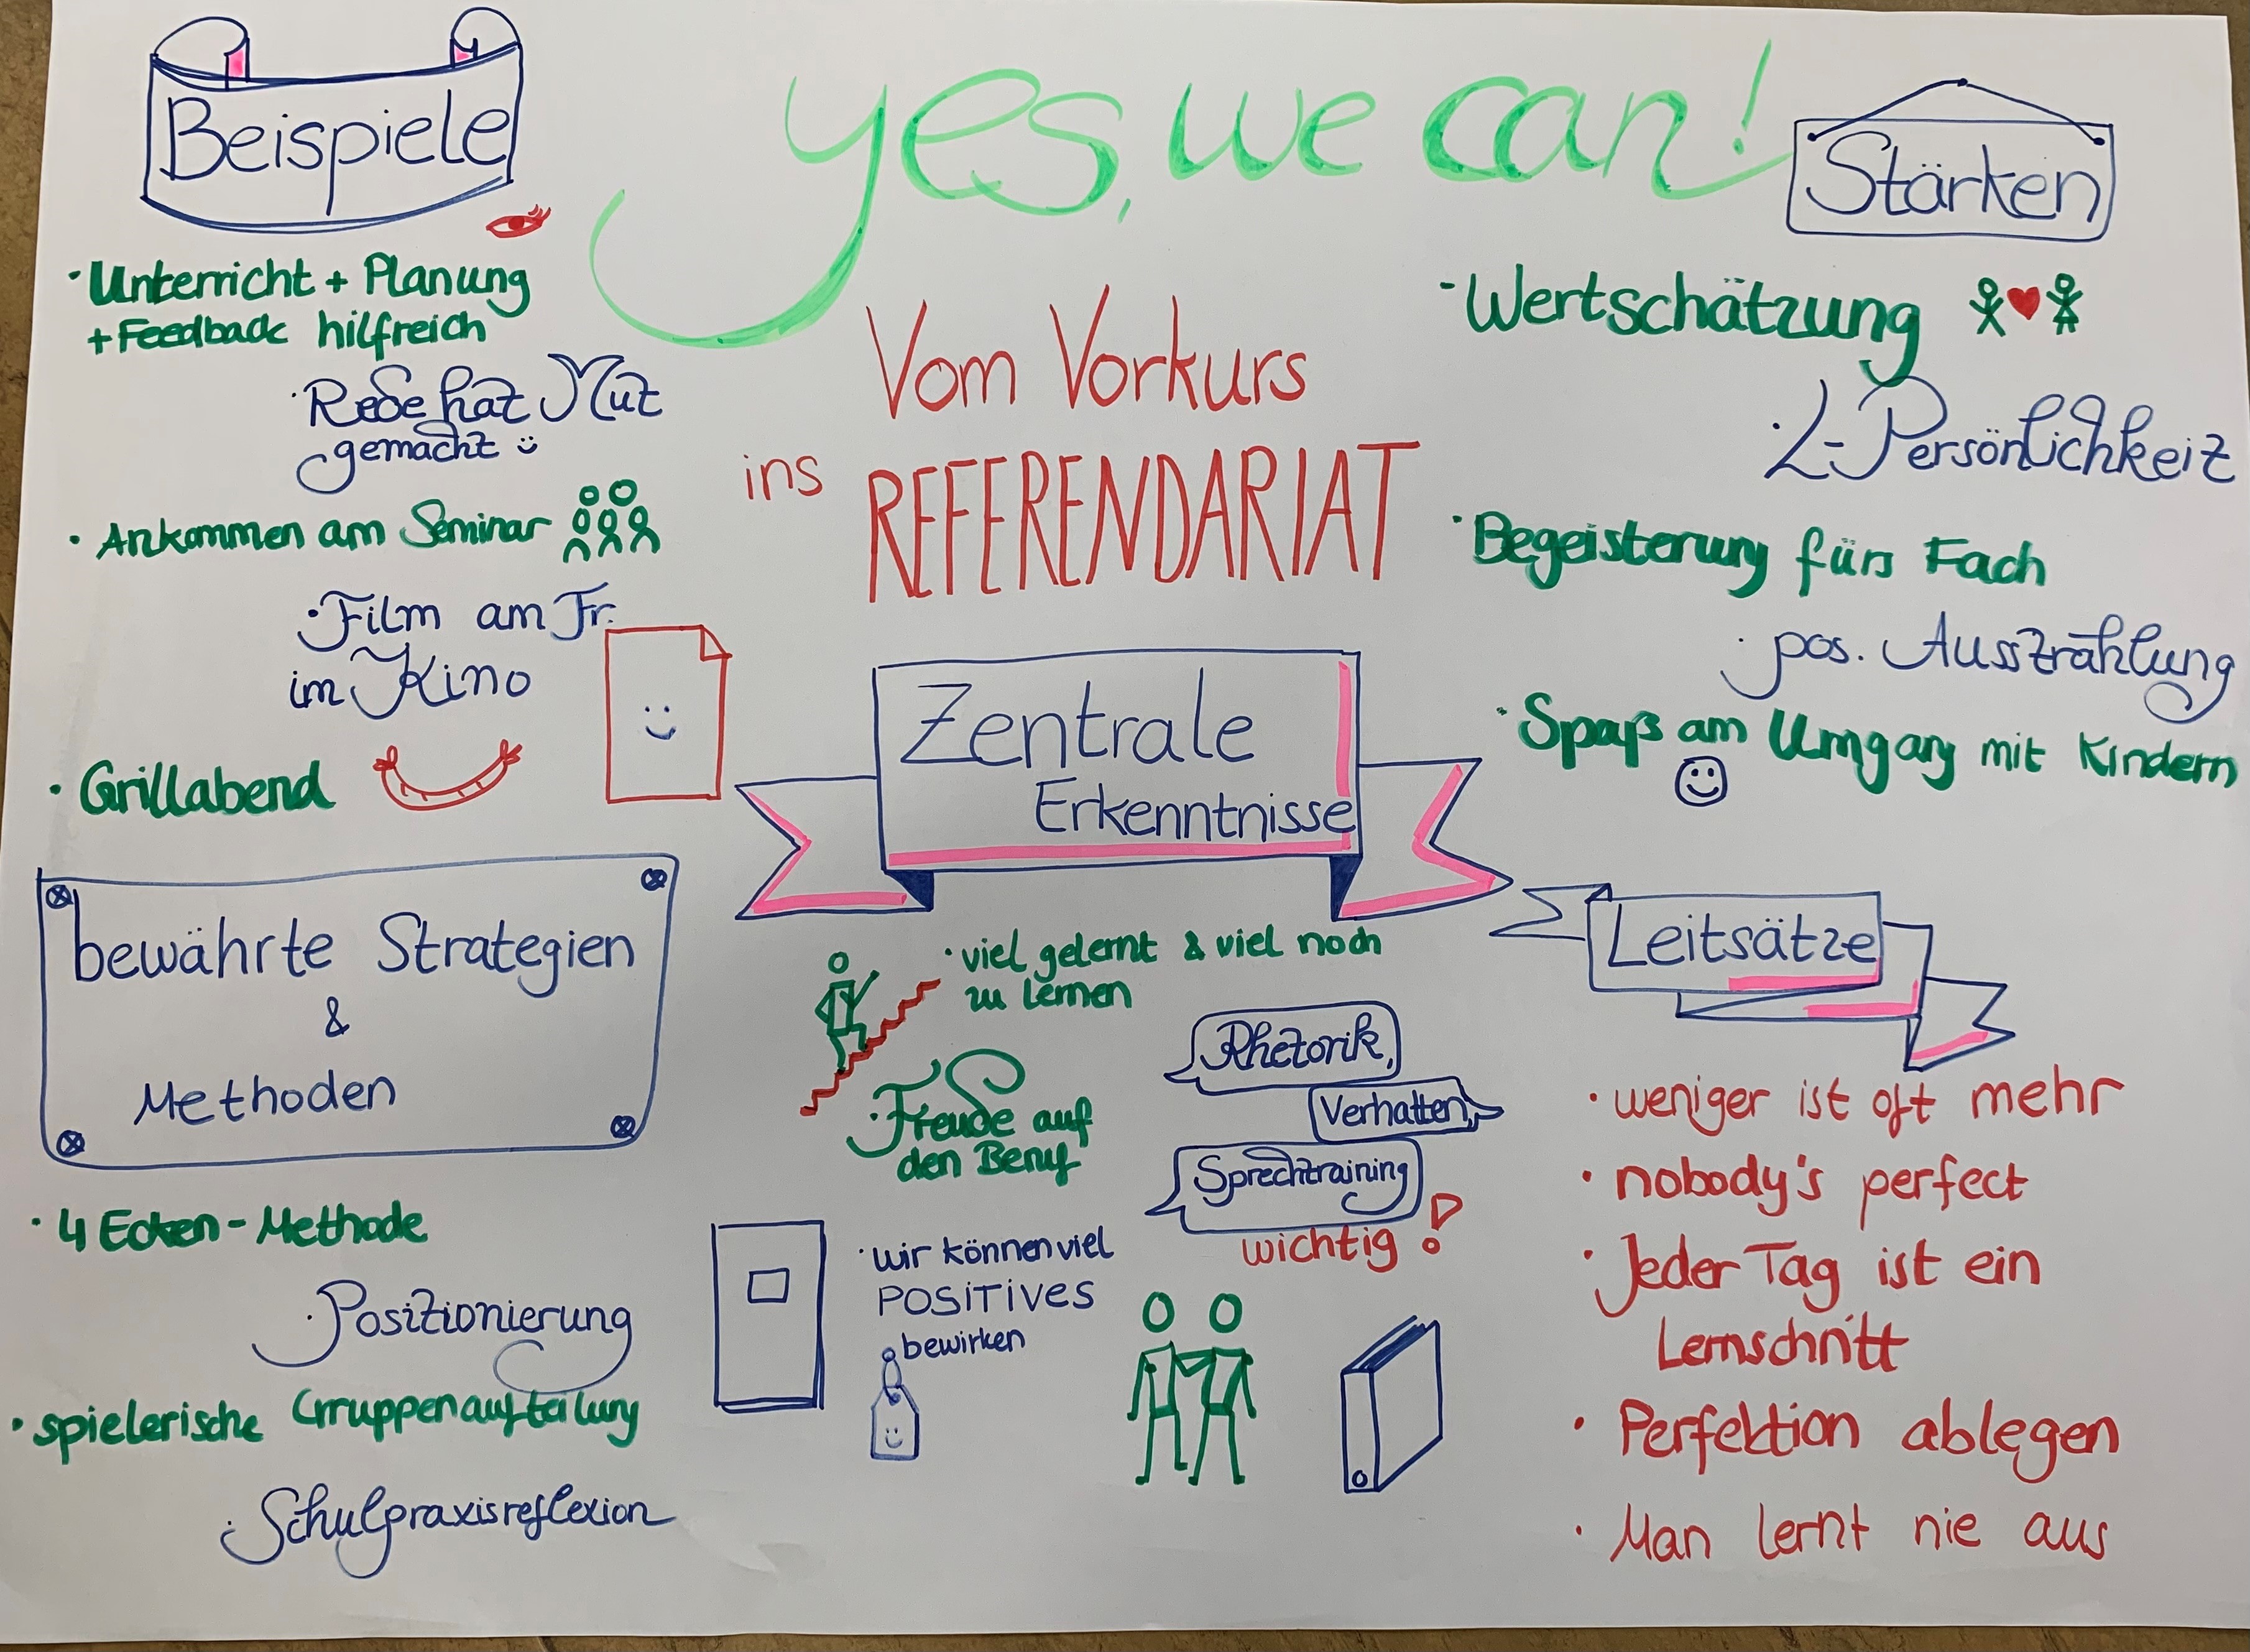 yes, we can!
Vom Vorkurs
ins REFERENDARIAT
Beispiele
· Unterricht + Planung
+ Feedback hilfreich
· Rede hat Mut
gemacht
· Ankommen am Seminar
· Film am Fr.
im Kino
· Grillabend
bewährte Strategien
&
Methoden
· 4 Ecken-Methode
· Positionierung
· spielerische Gruppenaufteilung
· Schulpraxisreflexion
Zentrale
Erkenntnisse
· viel gelernt & viel noch
zu lernen
· Freude auf
den Beruf
Rhetorik,
Verhalten,
Sprechtraining
wichtig!
· wir können viel
POSITIVES
bewirken
Stärken
· Wertschätzung
· L-Persönlichkeit
· Begeisterung fürs Fach
· pos. Ausstrahlung
· Spaß am Umgang mit Kindern
Leitsätze
· weniger ist oft mehr
· nobody's perfect
· Jeder Tag ist ein
Lernschritt
· Perfektion ablegen
· Man lernt nie aus